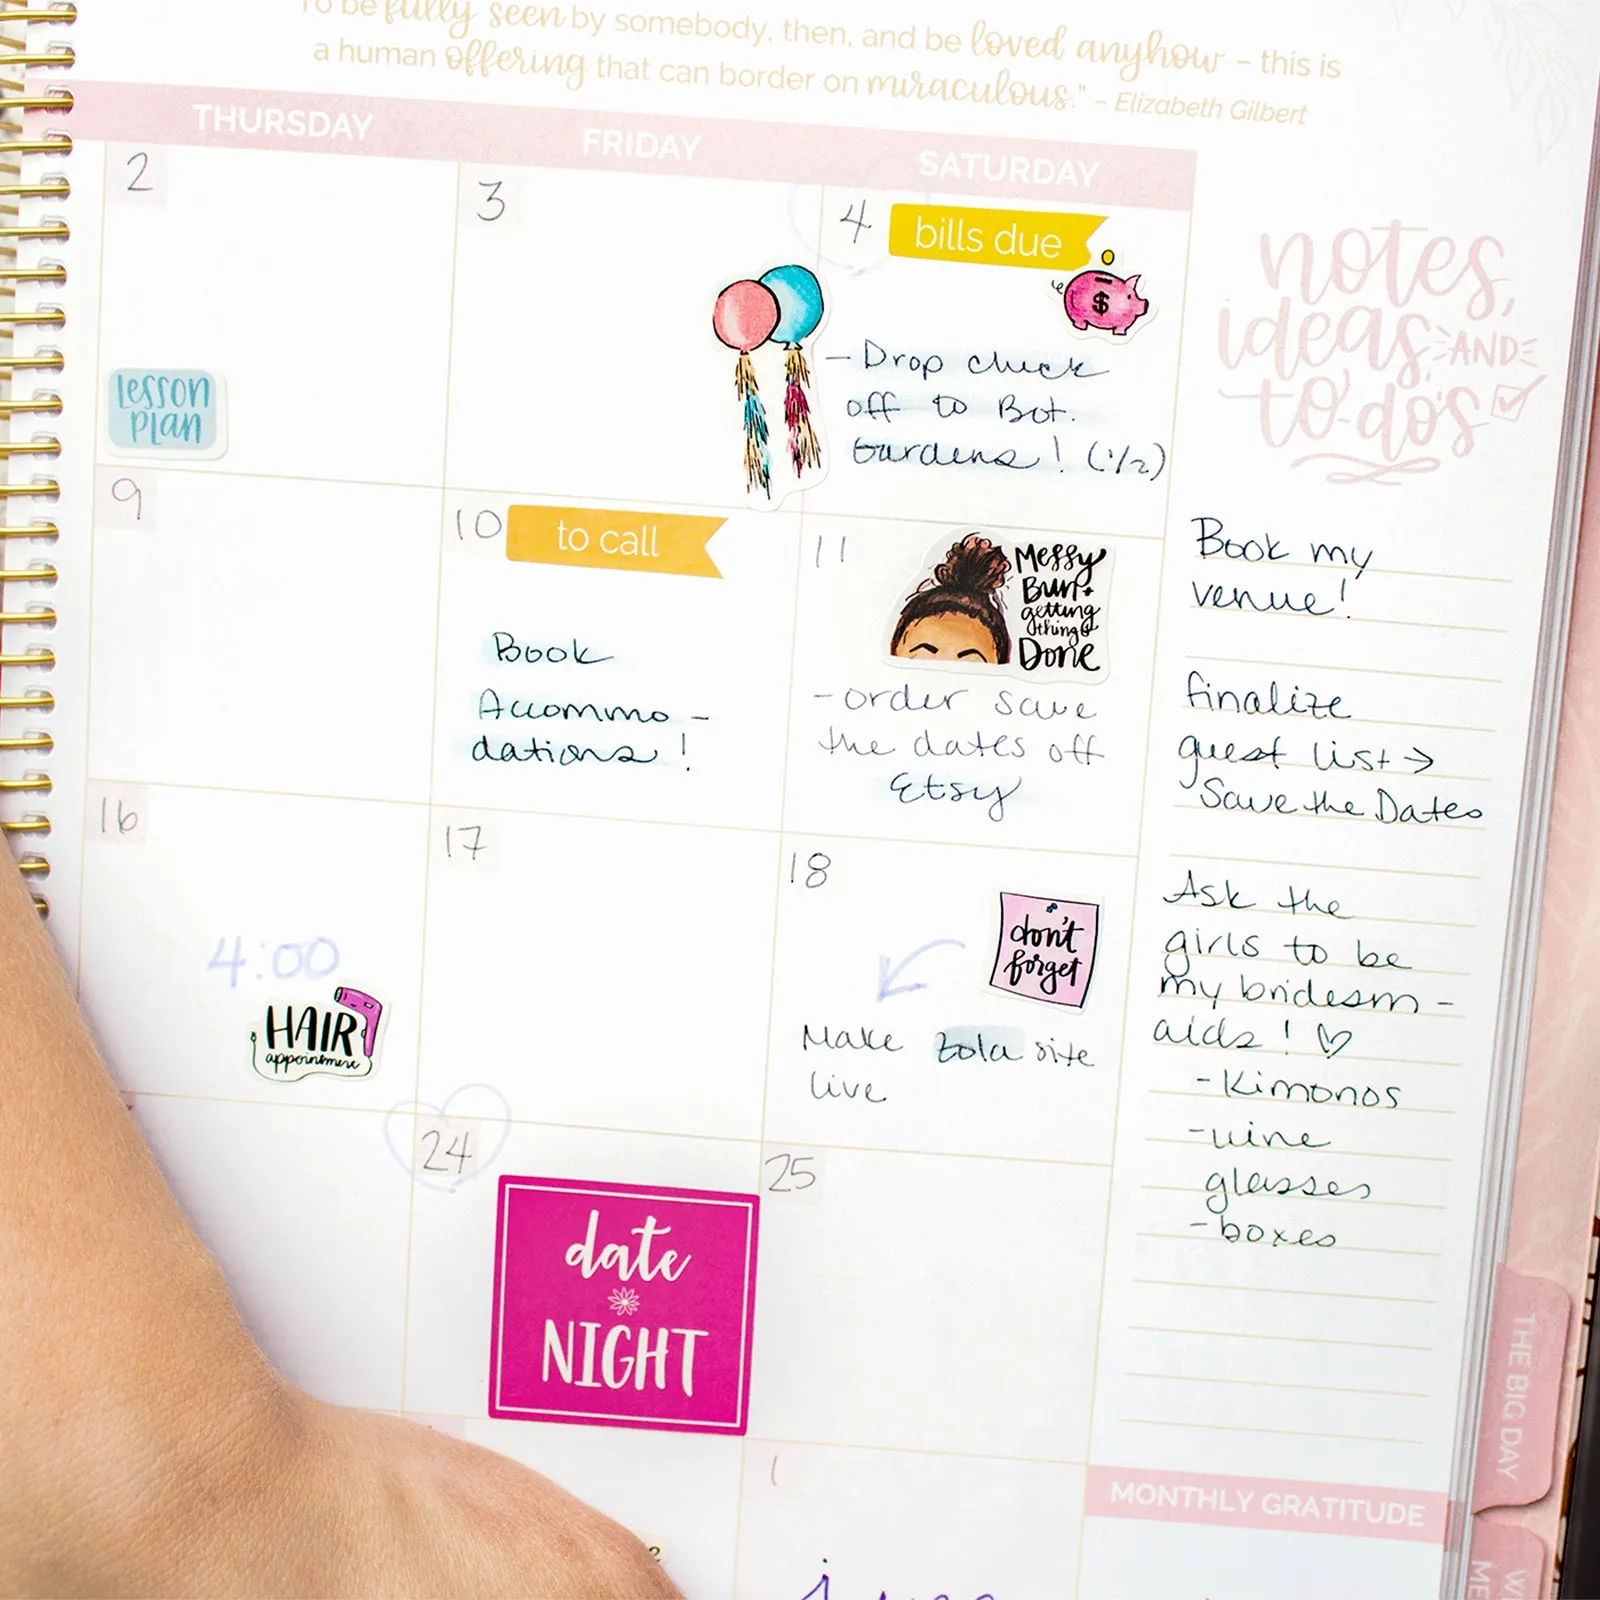 To be fully seen by somebody, then, and be loved anyhow – this is
a human offering that can border on miraculous." – Elizabeth Gilbert
THURSDAY
FRIDAY
SATURDAY
2
lesson
plan
3
4
bills due
$
- Drop check
off to Bot.
Gardens! (1/2)
9
10
to call
Book
Accommo-
dations!
11
Messy
Bun +
getting
things
Done
- order save
the dates off
Etsy
16
4:00
HAIR
appointment
17
18
don't
forget
Make Zola site
live
24
date
NIGHT
25
1
notes,
ideas AND
to-do's
Book my
venue!
finalize
guest list →
Save the Dates
Ask the
girls to be
my bridesm-
aids! ♡
- Kimonos
- wine
glasses
- boxes
MONTHLY GRATITUDE
THE BIG DAY